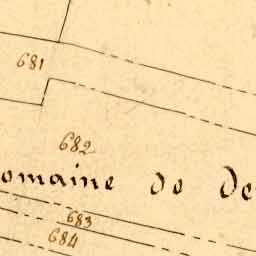 681
682
omaine de De
683
684